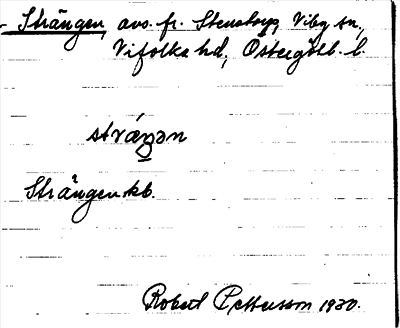 - Strängen, avs. fr. Stenstorp, Viby sn,
Vifolka hd, Östergötl. l.
stráŋən
Strängen kb.
Robert Pettersson 1930.